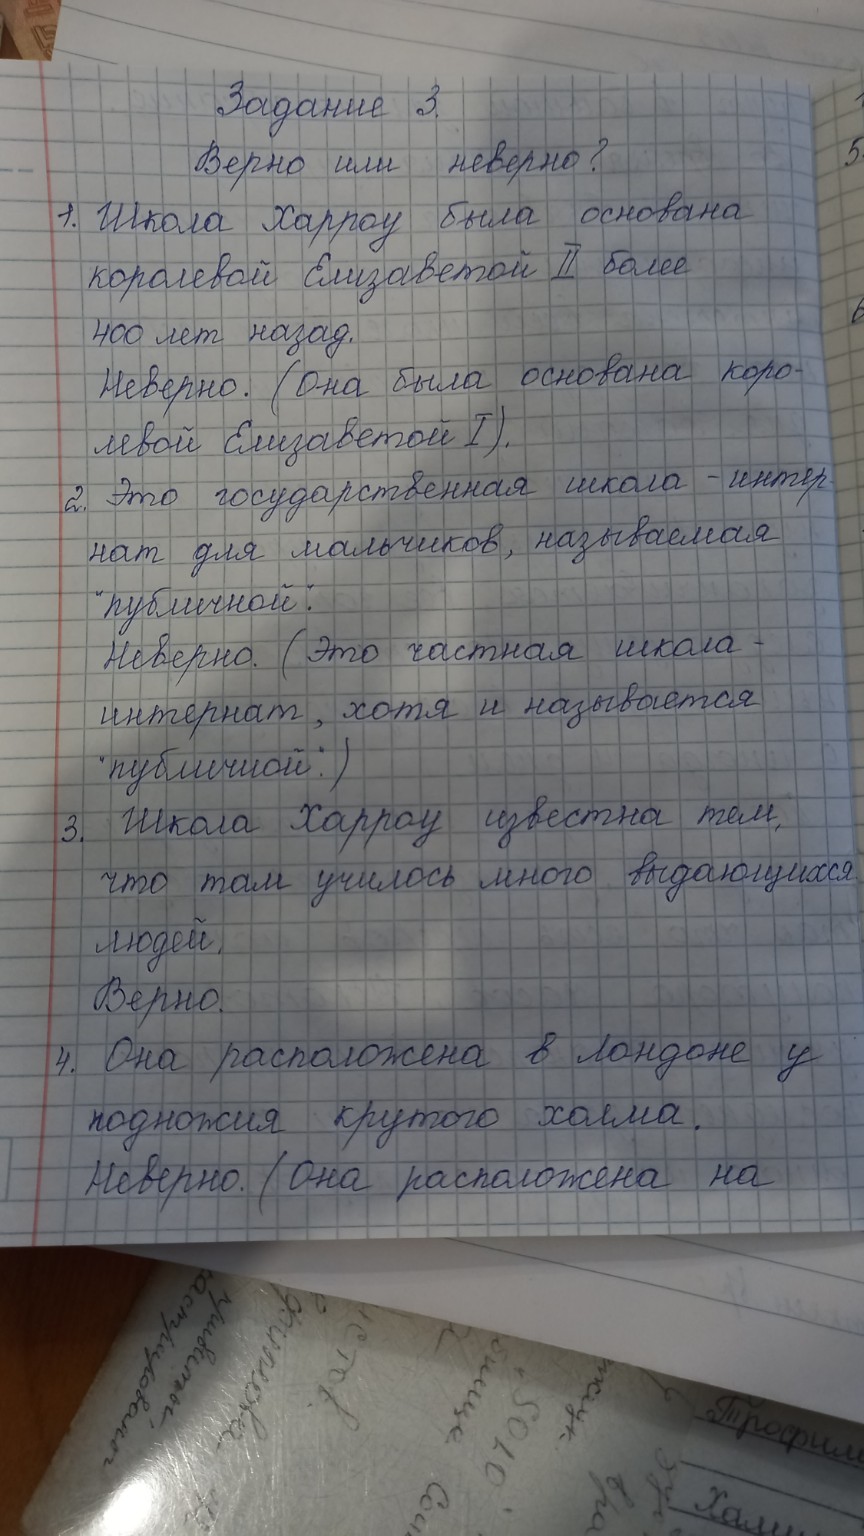 Задание 3.
Верно или неверно?
1. Школа Харроу была основана
королевой Елизаветой II более
400 лет назад.
Неверно. (Она была основана коро-
левой Елизаветой I).
2. Это государственная школа - интер
нат для мальчиков, называемая
"публичной".
Неверно. (Это частная школа -
интернат, хотя и называется
"публичной".)
3. Школа Харроу известна тем,
что там училось много выдающихся
людей.
Верно.
4. Она расположена в Лондоне у
подножия крутого холма.
Неверно. (Она расположена на
5.
6
"SOLO"